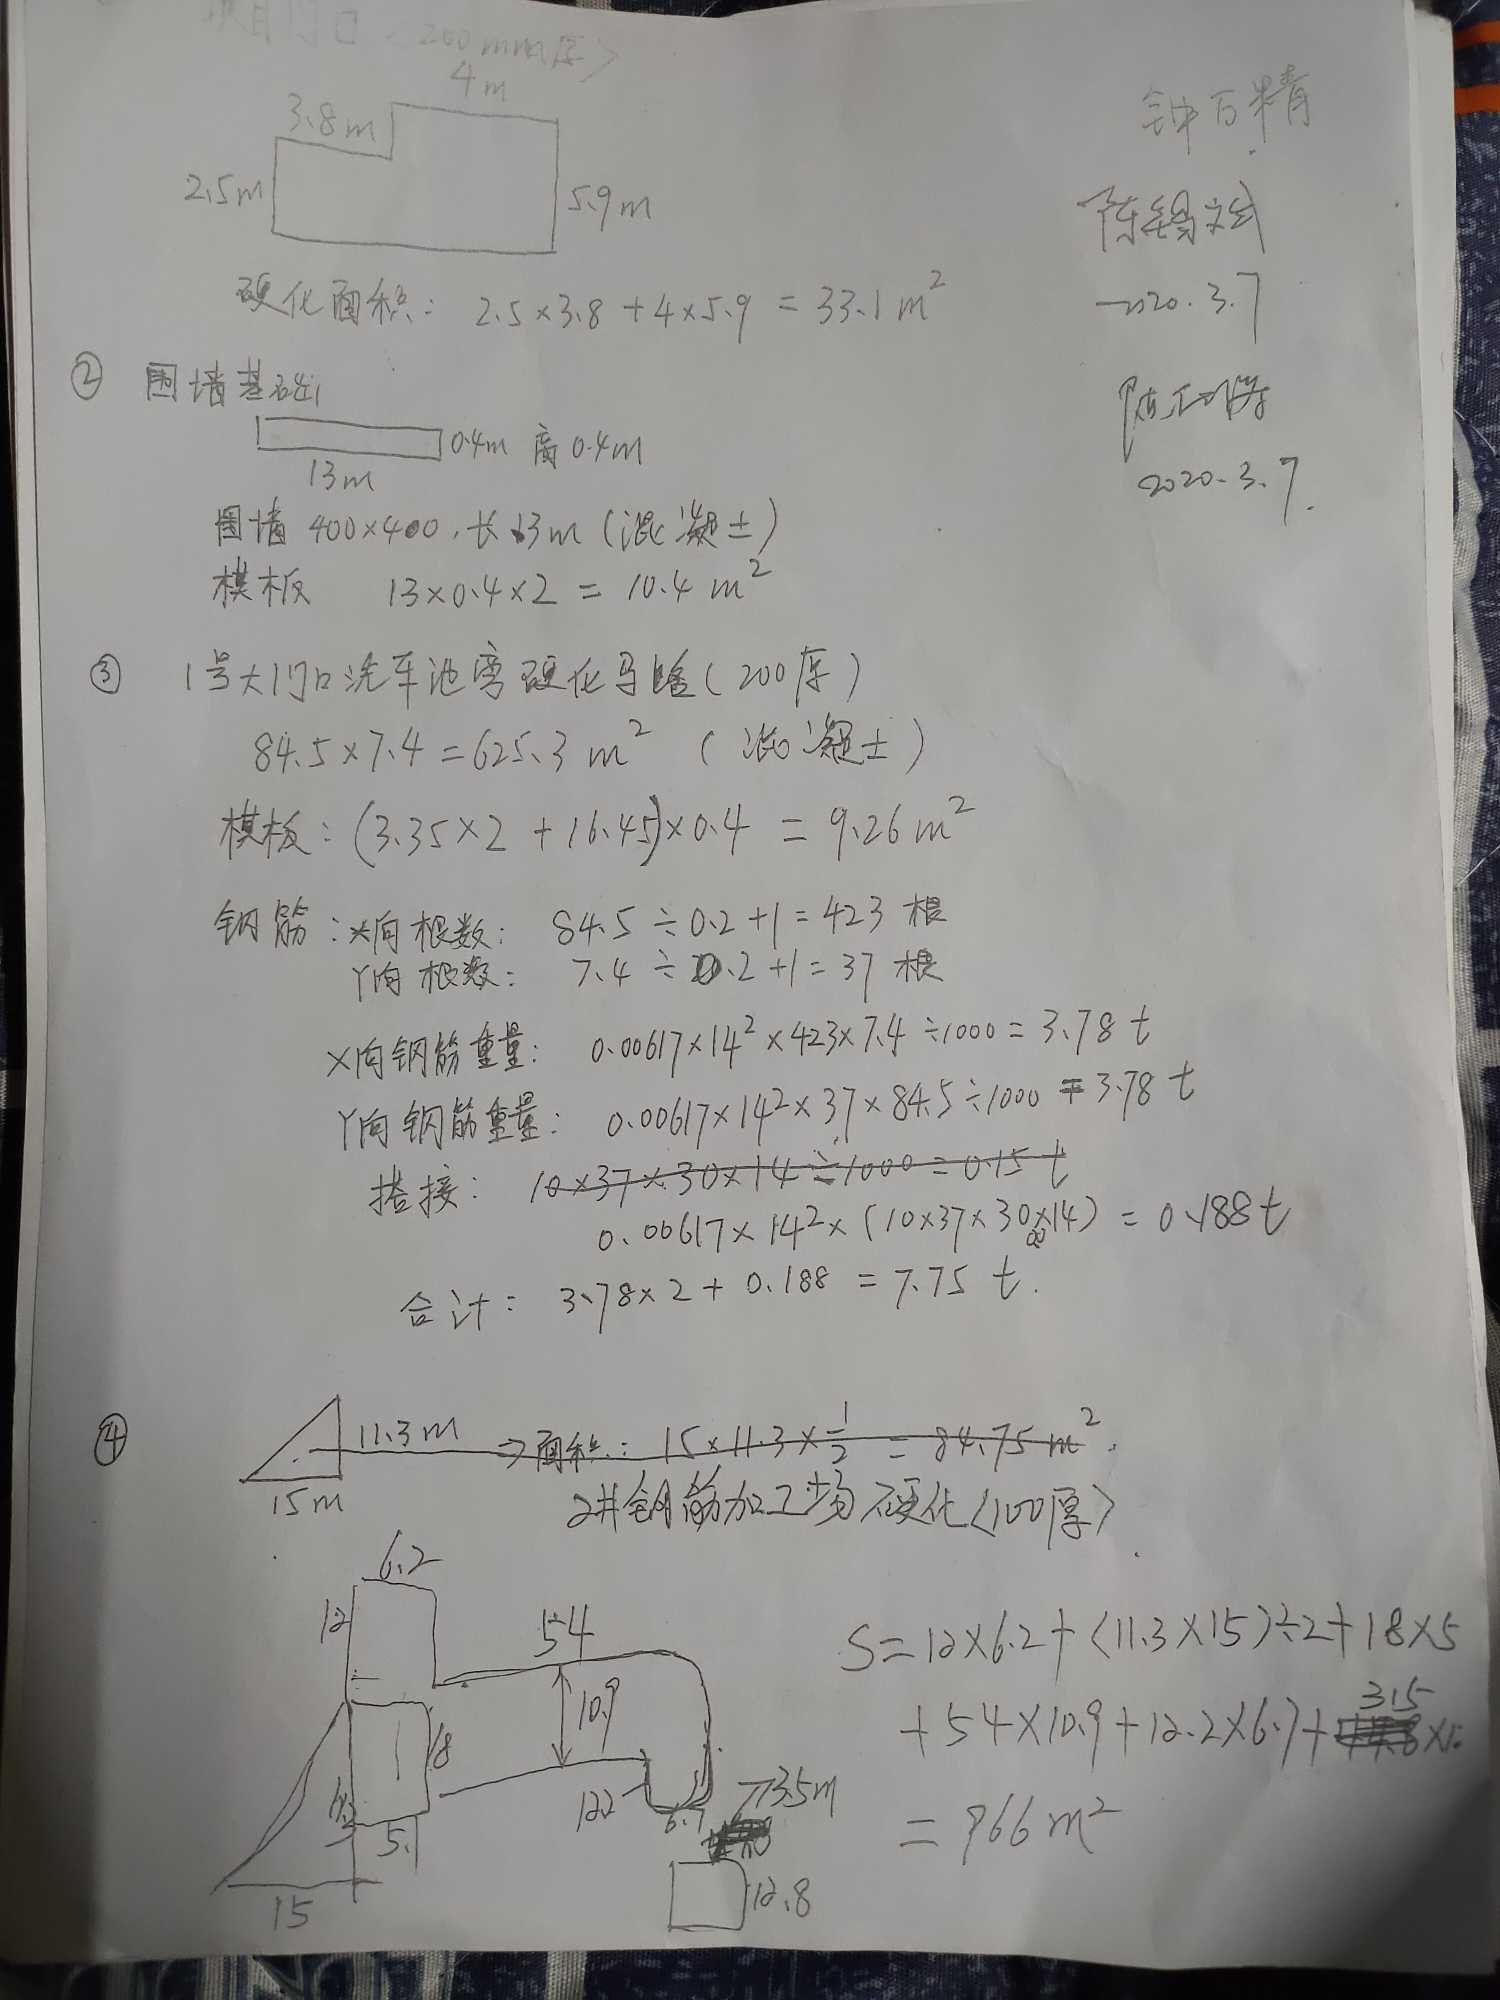 项目门口<200mm厚>
4m
3.8m
2.5m
5.9m
硬化面积: 2.5×3.8+4×5.9=33.1m²
2020.3.7
② 围墙基础
0.4m 高0.4m
13m
2020.3.7.
围墙 400×400,长13m(混凝土)
模板 13×0.4×2=10.4m²
③ 1号大门口洗车池旁硬化马路(200厚)
84.5×7.4=625.3m² (混凝土)
模板:(3.35×2+16.45)×0.4=9.26m²
钢筋:X向根数: 84.5÷0.2+1=423根
Y向根数: 7.4÷0.2+1=37根
X向钢筋重量: 0.00617×14²×423×7.4÷1000=3.78t
Y向钢筋重量: 0.00617×14²×37×84.5÷1000=3.78t
搭接: 10×37×30×14÷1000=0.15t
0.00617×14²×(10×37×30×14)=0.188t
合计: 3.78×2+0.188=7.75t.
④ 11.3m ⇒面积: 15×11.3×1/2=84.75m².
15m
2#钢筋加工场硬化<100厚>
6.2
12
54
10.9
18
5.1
12.2
6.7
3.5m
12.8
15
S=12×6.2+(11.3×15)÷2+18×5
+54×10.9+12.2×6.7+3.5
=966m²